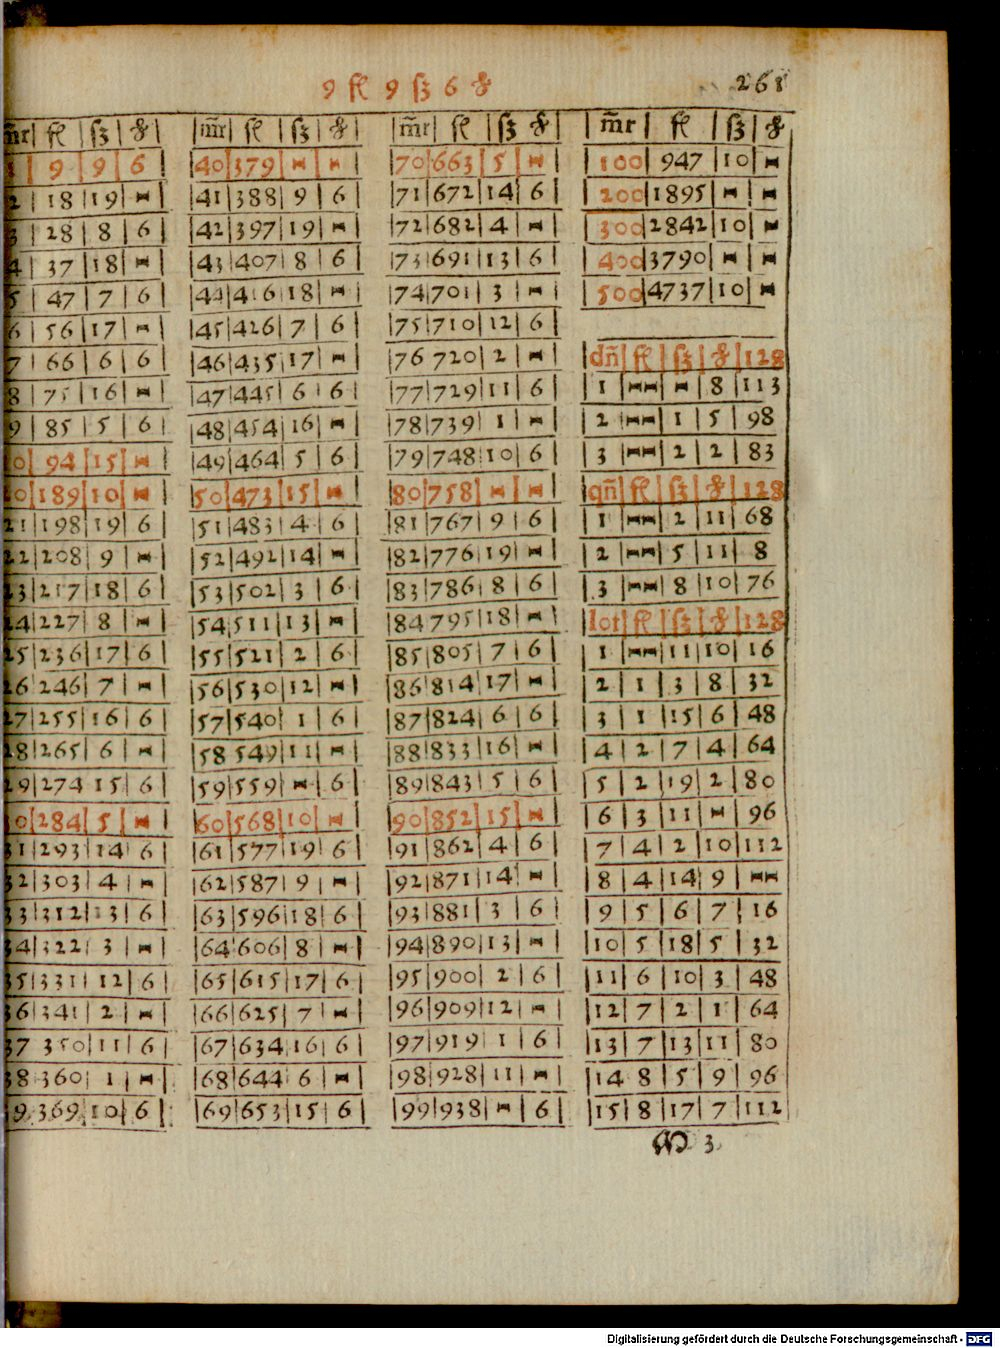 9 fl 9 ß 6 ₰
268
m̃r fl ß ₰
1 9 9 6
2 18 19 ⧓
3 28 8 6
4 37 18 ⧓
5 47 7 6
6 56 17 ⧓
7 66 6 6
8 75 16 ⧓
9 85 5 6
10 94 15 ⧓
20 189 10 ⧓
21 198 19 6
22 208 9 ⧓
23 217 18 6
24 227 8 ⧓
25 236 17 6
26 246 7 ⧓
27 255 16 6
28 265 6 ⧓
29 274 15 6
30 284 5 ⧓
31 293 14 6
32 303 4 ⧓
33 312 13 6
34 322 3 ⧓
35 331 12 6
36 341 2 ⧓
37 350 11 6
38 360 1 ⧓
39 369 10 6
m̃r fl ß ₰
40 379 ⧓ ⧓
41 388 9 6
42 397 19 ⧓
43 407 8 6
44 416 18 ⧓
45 426 7 6
46 435 17 ⧓
47 445 6 6
48 454 16 ⧓
49 464 5 6
50 473 15 ⧓
51 483 4 6
52 492 14 ⧓
53 502 3 6
54 511 13 ⧓
55 521 2 6
56 530 12 ⧓
57 540 1 6
58 549 11 ⧓
59 559 ⧓ 6
60 568 10 ⧓
61 577 19 6
62 587 9 ⧓
63 596 18 6
64 606 8 ⧓
65 615 17 6
66 625 7 ⧓
67 634 16 6
68 644 6 ⧓
69 653 15 6
m̃r fl ß ₰
70 663 5 ⧓
71 672 14 6
72 682 4 ⧓
73 691 13 6
74 701 3 ⧓
75 710 12 6
76 720 2 ⧓
77 729 11 6
78 739 1 ⧓
79 748 10 6
80 758 ⧓ ⧓
81 767 9 6
82 776 19 ⧓
83 786 8 6
84 795 18 ⧓
85 805 7 6
86 814 17 ⧓
87 824 6 6
88 833 16 ⧓
89 843 5 6
90 852 15 ⧓
91 862 4 6
92 871 14 ⧓
93 881 3 6
94 890 13 ⧓
95 900 2 6
96 909 12 ⧓
97 919 1 6
98 928 11 ⧓
99 938 ⧓ 6
m̃r fl ß ₰
100 947 10 ⧓
200 1895 ⧓ ⧓
300 2842 10 ⧓
400 3790 ⧓ ⧓
500 4737 10 ⧓
dñ fl ß ₰ 128
1 ⧓⧓ ⧓ 8 113
2 ⧓⧓ 1 5 98
3 ⧓⧓ 2 2 83
qñ fl ß ₰ 128
1 ⧓⧓ 2 11 68
2 ⧓⧓ 5 11 8
3 ⧓⧓ 8 10 76
lot fl ß ₰ 128
1 ⧓⧓ 11 10 16
2 1 3 8 32
3 1 15 6 48
4 2 7 4 64
5 2 19 2 80
6 3 11 ⧓ 96
7 4 2 10 112
8 4 14 9 ⧓⧓
9 5 6 7 16
10 5 18 5 32
11 6 10 3 48
12 7 2 1 64
13 7 13 11 80
14 8 5 9 96
15 8 17 7 112
M 3
Digitalisierung gefördert durch die Deutsche Forschungsgemeinschaft - DFG